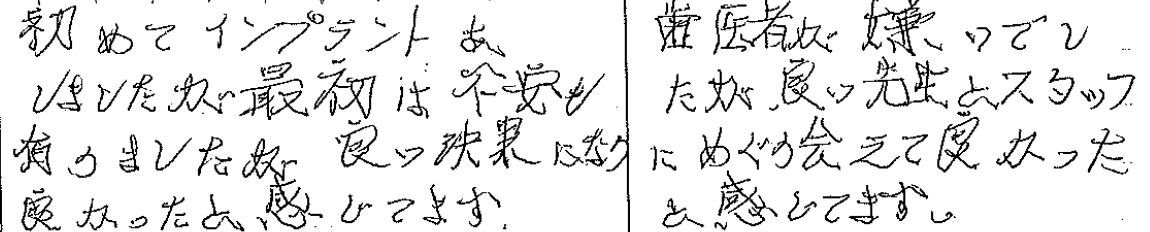 初めてインプラントを
しましたが最初は不安も
有りましたが良い決果になり
良かったと感じてます.
歯医者が嫌いでし
たが良い先生とスタッフ
にめぐり会えて良かった
と感じてます。